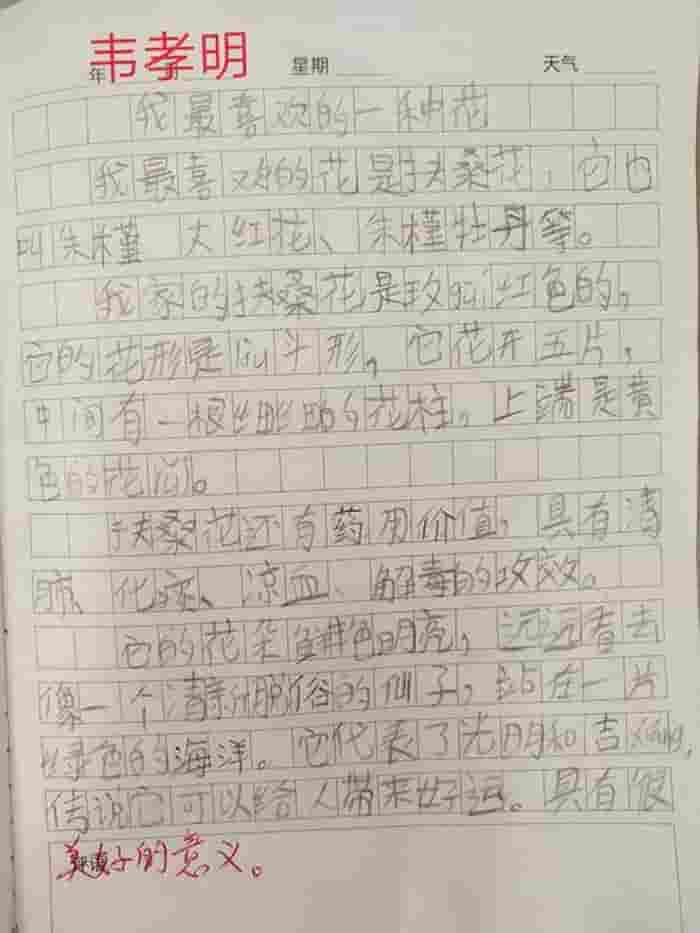 年 韦孝明 星期 天气
我最喜欢的一种花
我最喜欢的花是扶桑花,它也
叫朱槿 大红花、朱槿牡丹等。
我家的扶桑花是玫瑰红色的,
它的花形是 斗形,它花开五片,
中间有一根细细的花柱,上端是黄
色的花 。
扶桑花还有药用价值,具有清
肺、化痰、凉血、解毒的攻效。
它的花朵鲜色明亮,远远看去
像一个清新脱俗的仙子,站在一片
绿色的海洋。它代表了光明和吉xiáng,
传说它可以给人带来好运。具有很
美好的意义。